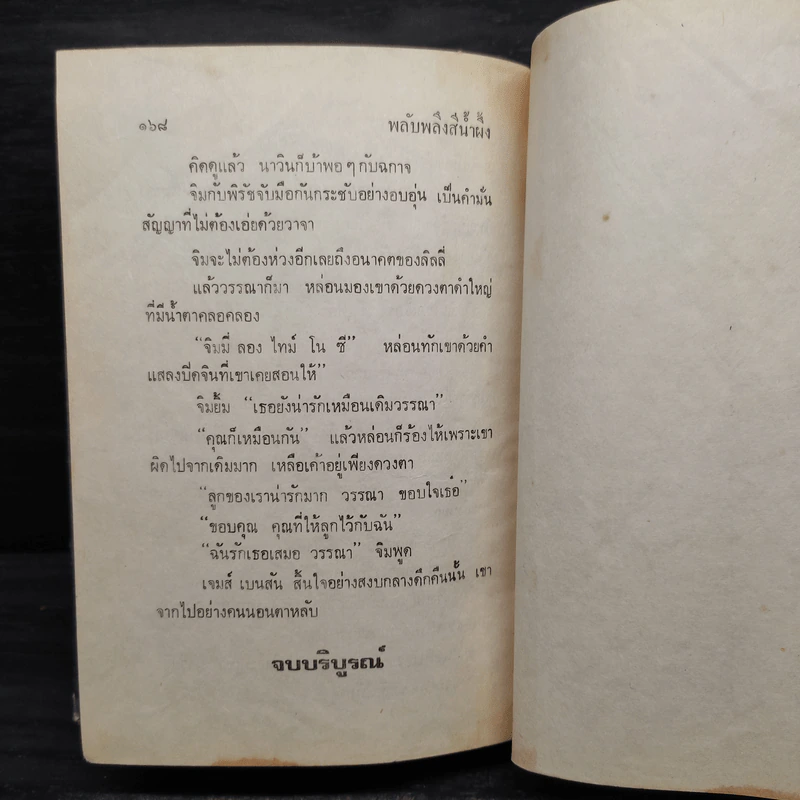 ๑๖๘ พลับพลึงสีน้ำผึ้ง
คิดดูแล้ว นาวินก็บ้าพอๆกับฉกาจ
จิมกับพิรัชจับมือกันกระชับอย่างอบอุ่น เป็นคำมั่น
สัญญาที่ไม่ต้องเอ่ยด้วยวาจา
จิมจะไม่ต้องห่วงอีกเลยถึงอนาคตของลิลลี่
แล้ววรรณาก็มา หล่อนมองเขาด้วยดวงตาดำใหญ่
ที่มีน้ำตาคลอคลอง
“จิมมี่ ลอง ไทม์ โน ซี” หล่อนทักเขาด้วยคำ
แสลงปิดจินที่เขาเคยสอนให้”
จิมยิ้ม “เธอยังน่ารักเหมือนเดิมวรรณา”
“คุณก็เหมือนกัน” แล้วหล่อนก็ร้องไห้เพราะเขา
ผิดไปจากเดิมมาก เหลือเค้าอยู่เพียงดวงตา
“ลูกของเราน่ารักมาก วรรณา ขอบใจเธอ”
“ขอบคุณ คุณที่ให้ลูกไว้กับฉัน”
“ฉันรักเธอเสมอ วรรณา” จิมพูด
เจมส์ เบนสัน สิ้นใจอย่างสงบกลางดึกคืนนั้น เขา
จากไปอย่างคนนอนตาหลับ
จบบริบูรณ์